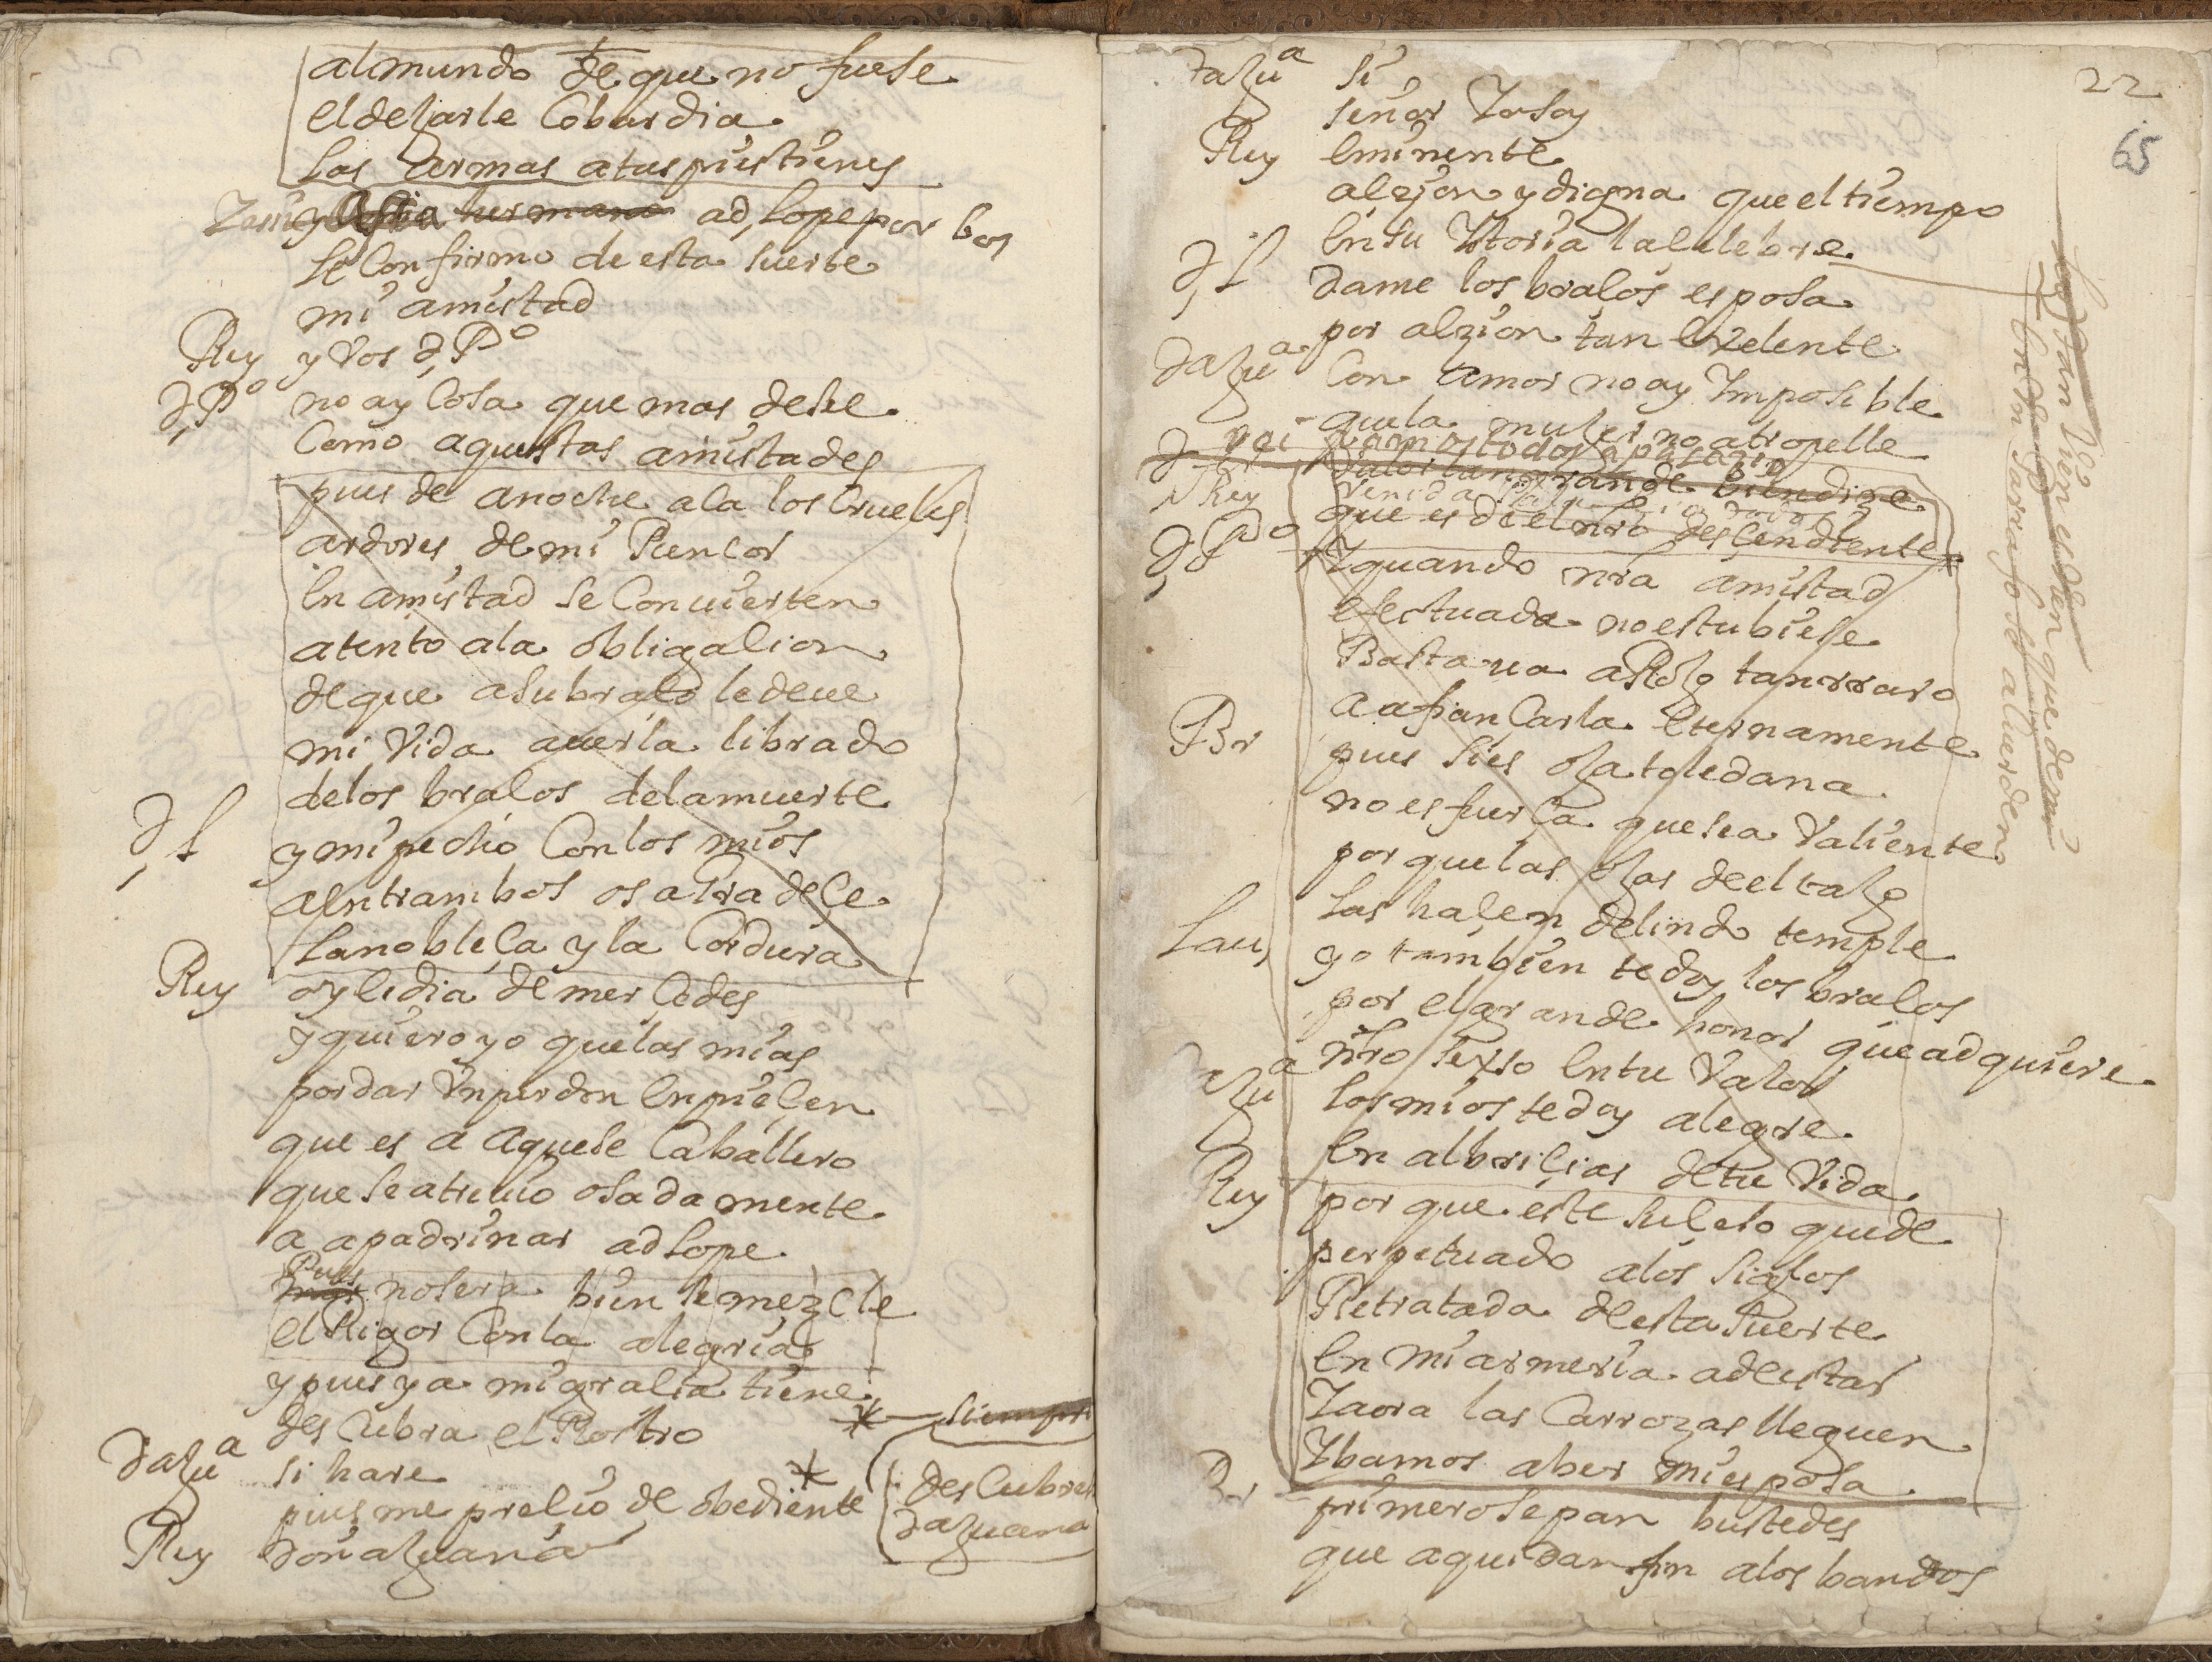 al mundo de que no fuese
el dejarle Cobardia
las armas a tus pies tienes
hermana ad, Lope por bos
se Confirmo de esta suerte
mi amistad
Rey y Vos d, Pº
d, Pº no ay Cosa que mas desee
Como aquestas amistades
pues de anoche aca los Crueles
ardores de mi Rencor
en amistad se Conuierten
atento a la obligaçion
de que a su braço le deue
mi Vida auerla librado
de los braços de la muerte
d, L y mi pecho Con los mios
a entrambos os agradeçe
la nobleça y la Cordura
Rey oy es dia de merçedes
y quiero yo que las mias
por dar Un perdon enpieçen
que es a aquese Caballero
que se atreuio osadamente
a apadrinar ad Lope
Pues no sera bien se mezcle
el Rigor Con la alegria
y pues ya mi graçia tiene
descubra el Rostro * siempre
dª juª si hare
pues me preçio de obediente * descubrese
dª juana
Rey doña juana
22
65
dª juª si
señor Yo soy
Rey eminente
açion y digna que el tiempo
en su Ystoria la çelebre
d, L dame los braços esposa
por açion tan exçelente
dª juª Con amor no ay Ymposible
que la mujer no atropelle
rei vamos todos a palaçio
d, Valor tan grande bien dize
Rey Venid
que es de el nro desçendiente
d, Pdo Y quando nra amistad
efectuada no estubiese
Bastaua aRojo tan rraro
a afiançarla eternamente
Br pues si es oja toledana
no es fuerça que sea Valiente
por que las ojas de el tajo
las haçen de lindo temple
Lau, yo tambien te doy los braços
por el grande honor que adquiere
nro sexso en tu Valor
juª los mios te doy alegre
en albriçias de tu Vida
Rey por que este suçeso quede
perpetuado a los siglos
Retratada de esta suerte
en mi armeria a de estar
Y aora las Carrozas lleguen
Y bamos a ber mi esposa
Br primero sepan bustedes
que aqui dan fin a los bandos
tan bien es dan que de mi
en Un Parrafo se acuerden